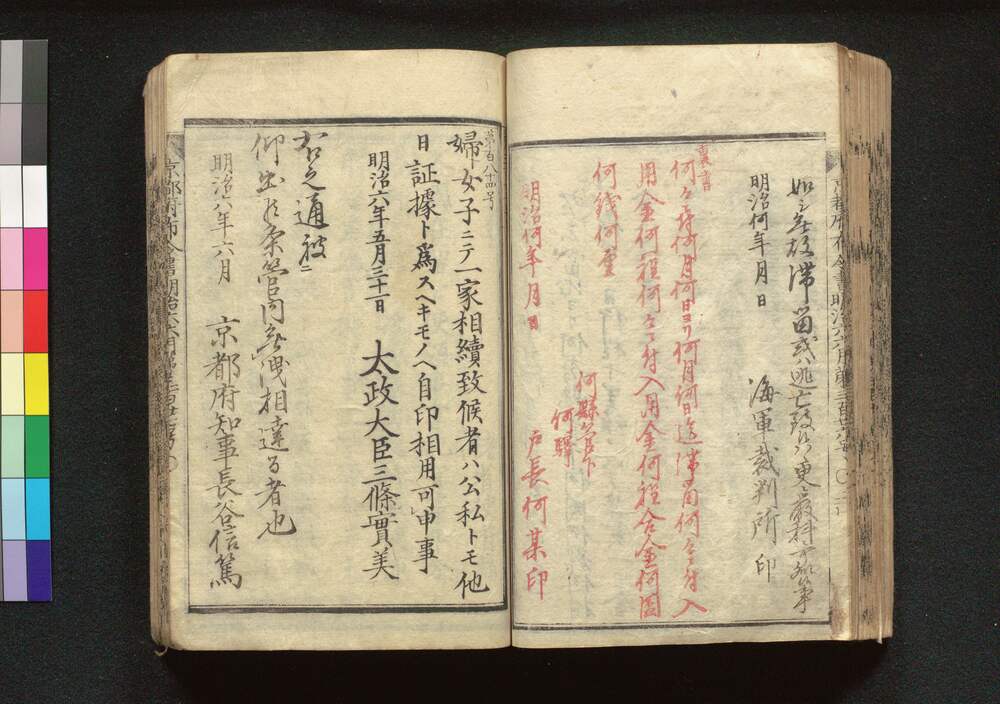 如シ無故滞留或ハ逃亡致候ハヽ更ニ嚴科可
明治何年月日
海軍裁判所 印
裏書
何々ニ付何月何日ヨリ何月何日迄滞留何々ニ付入
用金何程何々ニ付入用金何程合金何圓
何錢何厘
何縣管下
何驛
戸長何某印
明治何年月日
第百八十四号
婦女子ニテ一家相續致候者ハ公私トモ他
日証據ト爲スヘキモノヘ自印相用可申事
明治六年五月三十一日 太政大臣三條實美
右之通被
仰出候条管内無洩相達る者也
明治六年六月 京都府知事長谷信篤